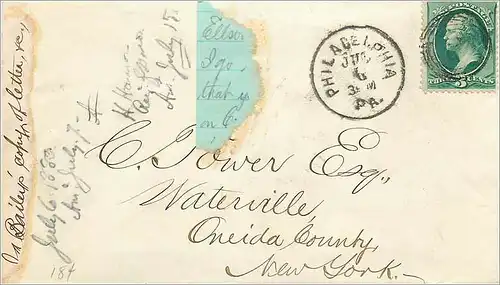 Ellsw
I go,
that is
on C.
PHILADELPHIA
JUL
6
3 PM
PA.
POSTAGE
THREE CENTS
C. Tower Esq.,
Waterville,
Oneida County,
New York.
Bailey's copy of letter, &c.,
July 6 1880
An'd July 7.
An'd July 15
18t